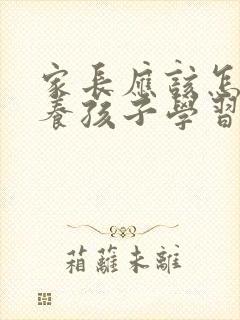 家長應該怎
養孩子學習
箱蘿未離